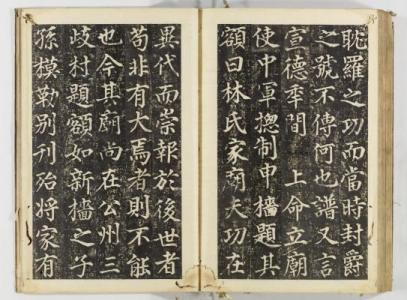 眺羅之功而當時封爵
之號不傳何也譜又言
宣德年間 上命立廟
使中軍揔制申檣題其
額曰林氏家廟夫功在
異代而崇報於後世者
苟非有大焉者則不能
也今其廟尚在公州三
歧村題額如新檣之子
孫模勒別刊殆將家有